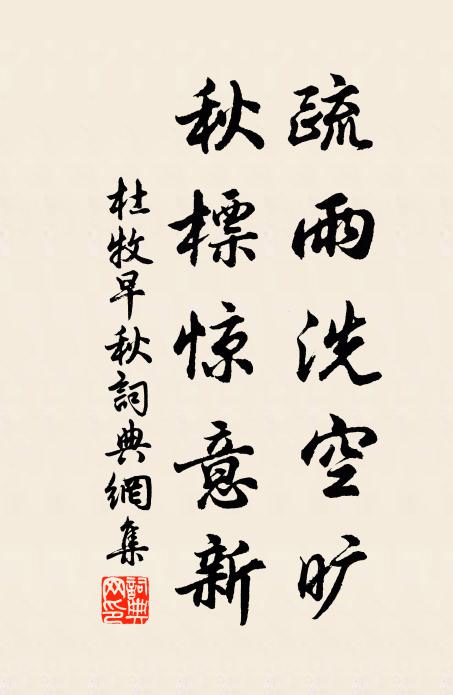 疏雨洗空旷
秋標惊意新
杜牧早秋詞典網集
詞典网印